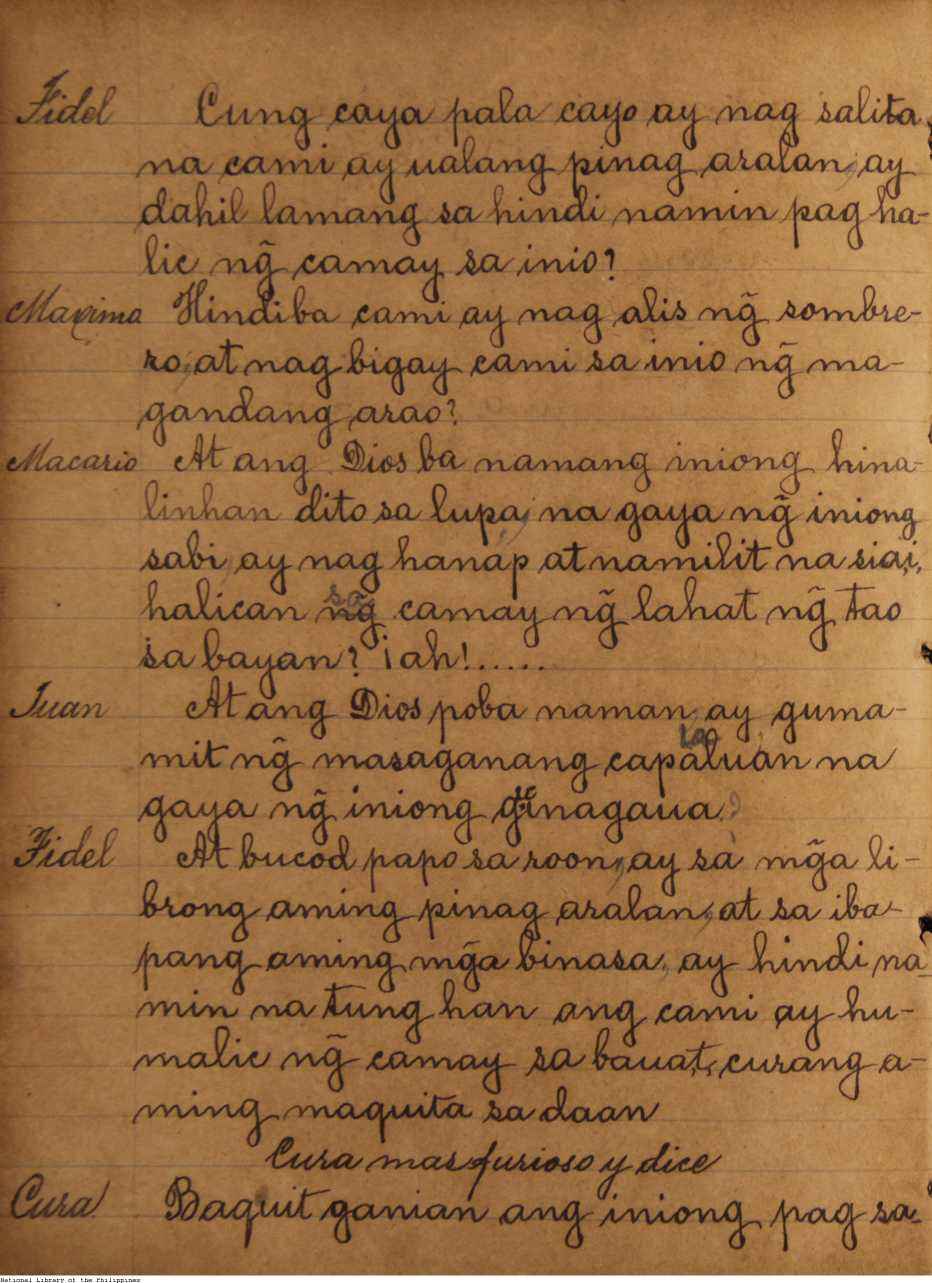 Fidel Cung caya pala cayo ay nag salita
na cami ay ualang pinag aralan, ay
dahil lamang sa hindi namin pag ha-
lic ng̃ camay sa inio?
Maxima Hindiba cami ay nag alis ng̃ sombre-
ro, at nag bigay cami sa inio ng̃ ma-
gandang arao?
Macario At ang Dios ba namang iniong hina-
linhan dito sa lupa, na gaya ng̃ iniong
sabi, ay nag hanap at namilit na siai,
halican sa camay ng̃ lahat ng̃ tao
sa bayan? ¡ah!......
Juan At ang Dios poba naman, ay guma-
mit ng̃ masaganang capalaluan na
gaya ng̃ iniong guinagaua?
Fidel At bucod papo sa roon, ay sa mg̃a li-
brong aming pinag aralan, at sa iba-
pang aming mg̃a binasa, ay hindi na
min na tung han ang cami ay hu-
malic ng̃ camay sa bauat, curang a-
ming maquita sa daan
Cura mas furioso y dice
Cura Baquit ganian ang iniong pag sa-
National Library of the Philippines